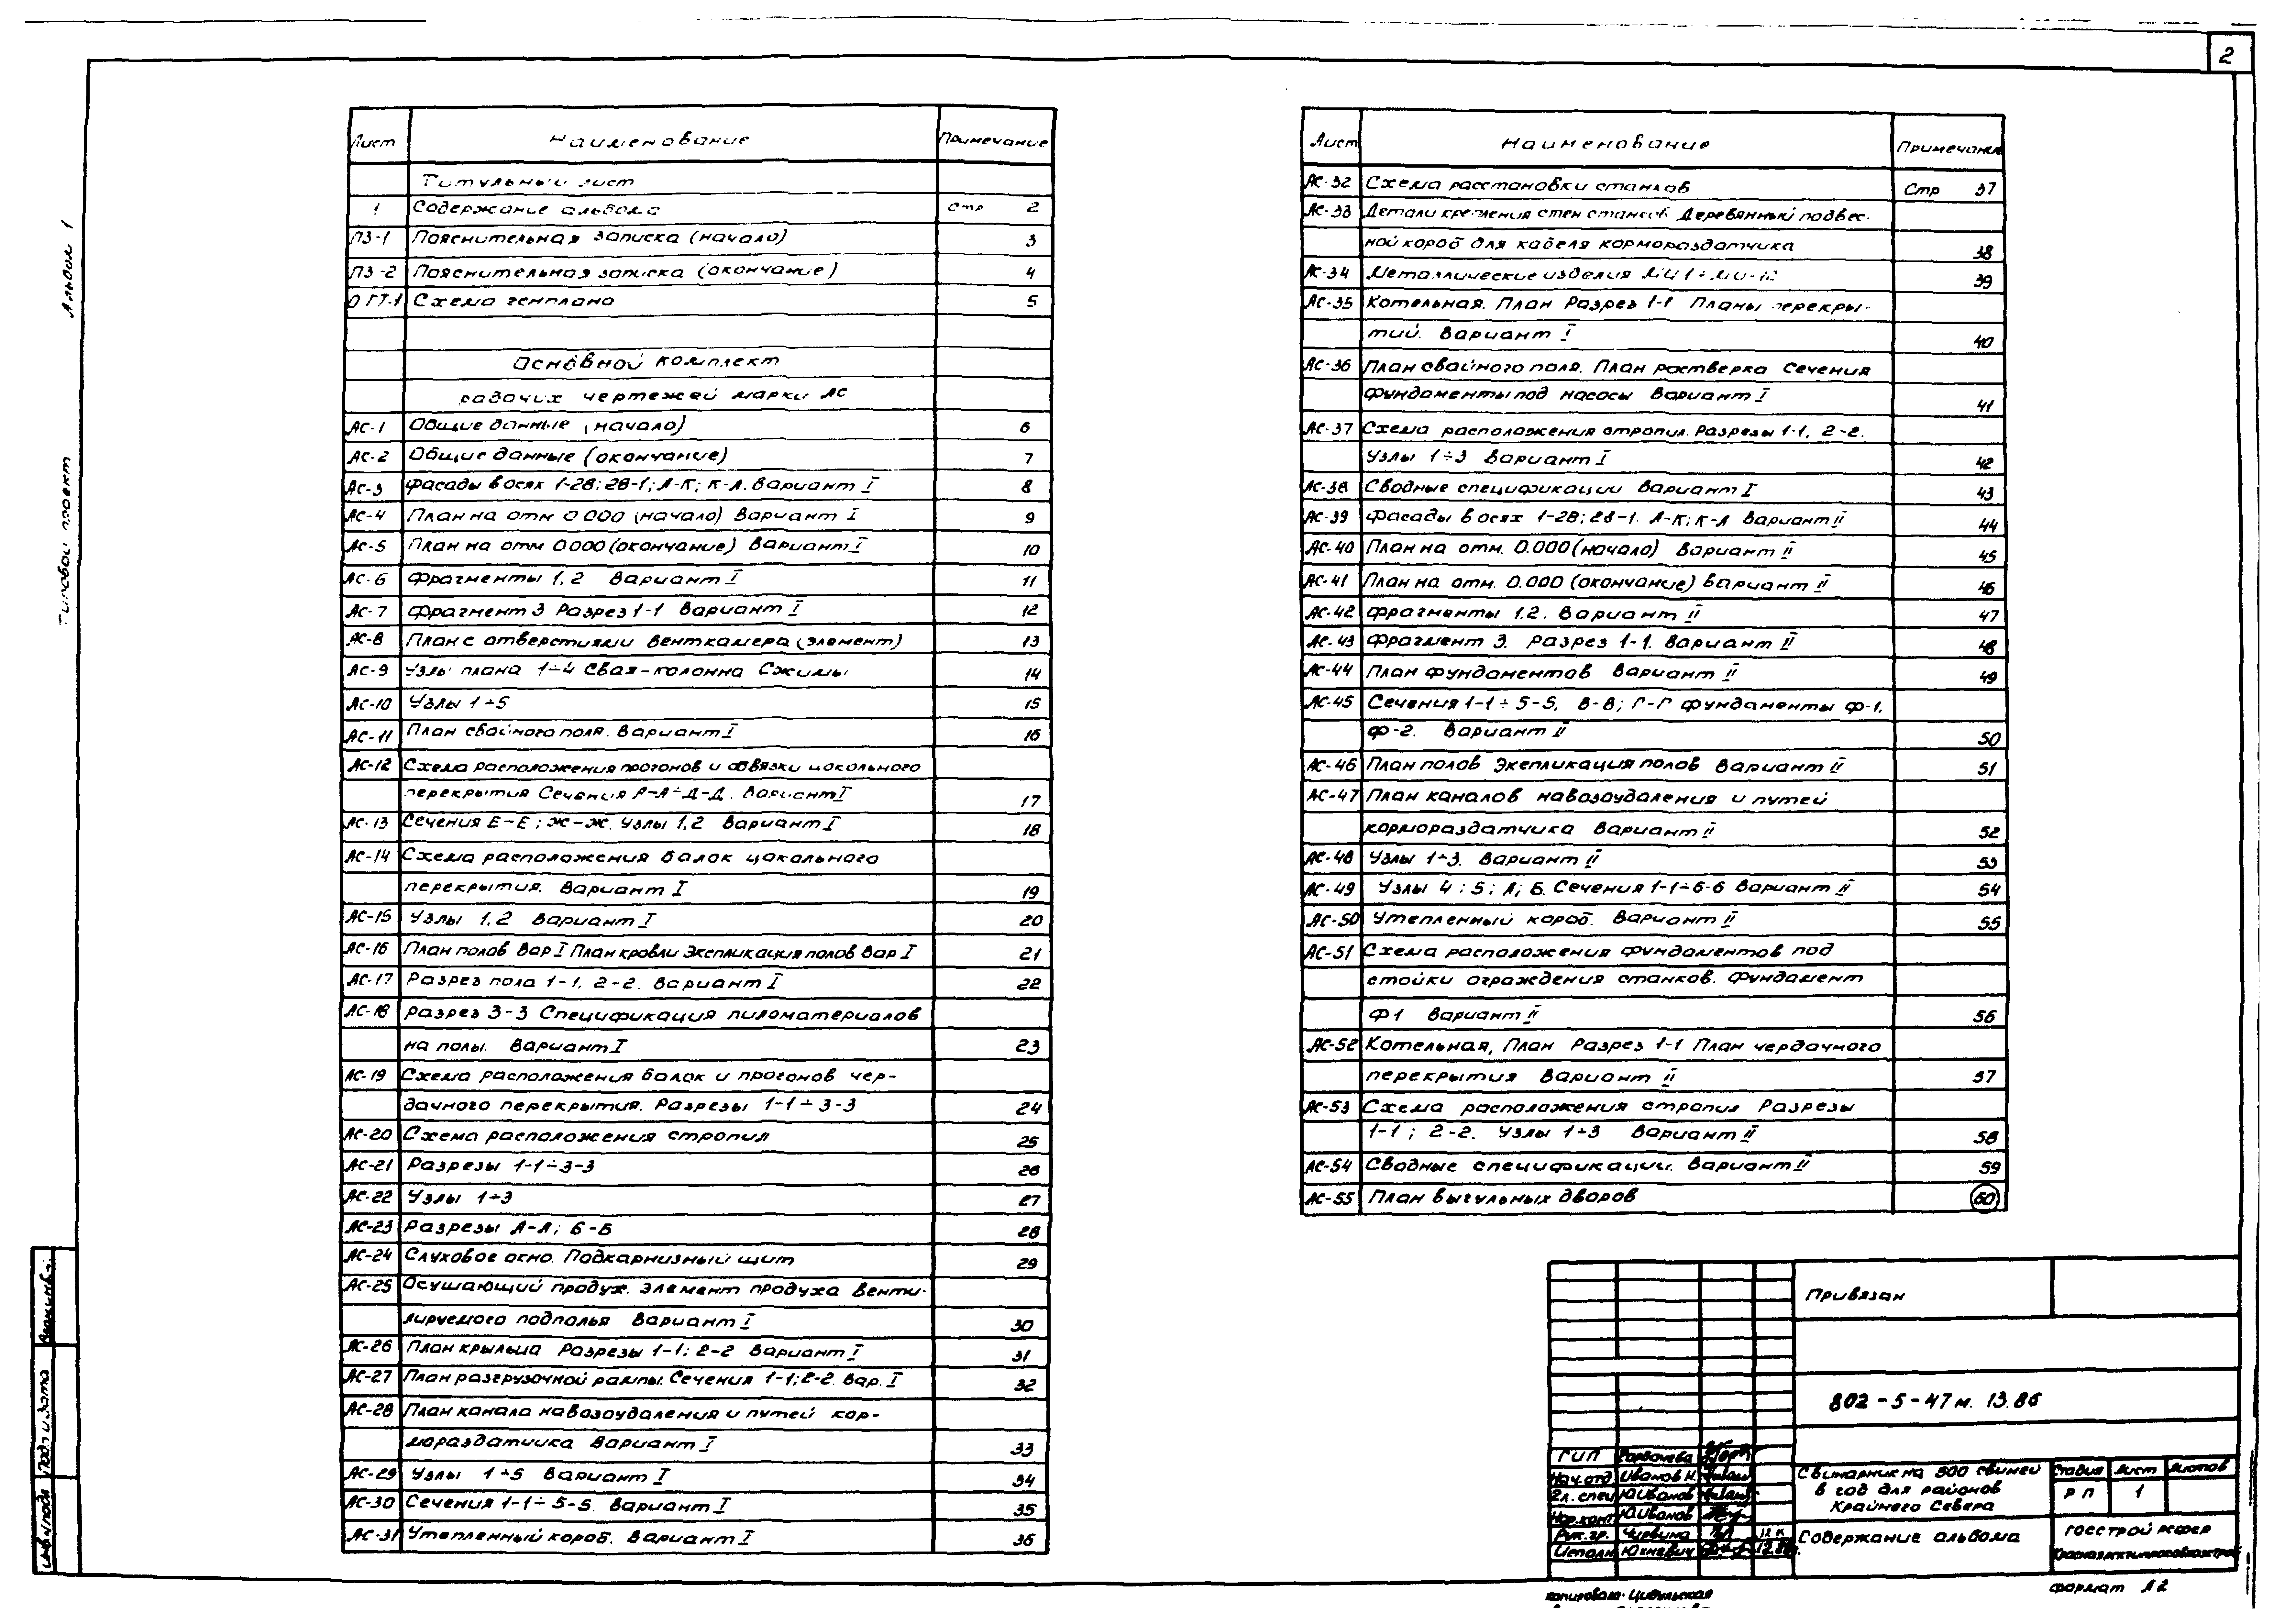 2
Альбом 1
Типовой проект
Лист Наименование Примечание
Титульный лист
1 Содержание альбома Стр 2
ПЗ-1 Пояснительная записка (начало) 3
ПЗ-2 Пояснительная записка (окончание) 4
Схема генплана 5
Основной комплект
рабочих чертежей марки АС
АС-1 Общие данные (начало) 6
АС-2 Общие данные (окончание) 7
АС-3 Фасады в осях 1-28; 28-1; А-К; К-А. Вариант I 8
АС-4 План на отм 0.000 (начало) Вариант I 9
АС-5 План на отм 0.000 (окончание) Вариант I 10
АС-6 Фрагменты 1,2 Вариант I 11
АС-7 Фрагмент 3 Разрез 1-1 Вариант I 12
АС-8 План с отверстиями Венткамера (элемент) 13
АС-9 Узлы плана 1÷4 Свая-колонна Сжимы 14
АС-10 Узлы 1÷5 15
АС-11 План свайного поля. Вариант I 16
АС-12 Схема расположения прогонов и обвязки цокольного
перекрытия Сечения А-А÷Д-Д. Вариант I 17
АС-13 Сечения Е-Е; Ж-Ж. Узлы 1,2 Вариант I 18
АС-14 Схема расположения балок цокольного
перекрытия. Вариант I 19
АС-15 Узлы 1,2 Вариант I 20
АС-16 План полов Вар I План кровли Экспликация полов Вар I 21
АС-17 Разрез пола 1-1, 2-2. Вариант I 22
АС-18 Разрез 3-3 Спецификация пиломатериалов
на полы. Вариант I 23
АС-19 Схема расположения балок и прогонов чер-
дачного перекрытия. Разрезы 1-1÷3-3 24
АС-20 Схема расположения стропил 25
АС-21 Разрезы 1-1÷3-3 26
АС-22 Узлы 1÷3 27
АС-23 Разрезы А-А; Б-Б 28
АС-24 Слуховое окно. Подкарнизный щит 29
АС-25 Осушающий продух. Элемент продуха венти-
лируемого подполья Вариант I 30
АС-26 План крыльца Разрезы 1-1; 2-2 Вариант I 31
АС-27 План разгрузочной рампы. Сечения 1-1; 2-2. Вар. I 32
АС-28 План канала навозоудаления и путей кор-
мораздатчика Вариант I 33
АС-29 Узлы 1÷5 Вариант I 34
АС-30 Сечения 1-1÷5-5. Вариант I 35
АС-31 Утепленный короб. Вариант I 36
Лист Наименование Примечание
АС-32 Схема расстановки станков Стр 37
АС-33 Детали крепления стен станков Деревянный подвес-
ной короб для кабеля кормораздатчика 38
АС-34 Металлические изделия МИ 1÷МИ-12 39
АС-35 Котельная. План Разрез 1-1 Планы перекры-
тий. Вариант I 40
АС-36 План свайного поля. План ростверка Сечения
фундаменты под насосы Вариант I 41
АС-37 Схема расположения стропил. Разрезы 1-1, 2-2.
Узлы 1÷3 Вариант I 42
АС-38 Сводные спецификации Вариант I 43
АС-39 Фасады в осях 1-28; 28-1. А-К; К-А Вариант II 44
АС-40 План на отм. 0.000 (начало) Вариант II 45
АС-41 План на отм. 0.000 (окончание) Вариант II 46
АС-42 Фрагменты 1.2. Вариант II 47
АС-43 Фрагмент 3. Разрез 1-1. Вариант II 48
АС-44 План фундаментов Вариант II 49
АС-45 Сечения 1-1÷5-5, В-В; Г-Г Фундаменты Ф-1,
Ф-2. Вариант II 50
АС-46 План полов Экспликация полов Вариант II 51
АС-47 План каналов навозоудаления и путей
кормораздатчика Вариант II 52
АС-48 Узлы 1÷3. Вариант II 53
АС-49 Узлы 4; 5; А; Б. Сечения 1-1÷6-6 Вариант II 54
АС-50 Утепленный короб. Вариант II 55
АС-51 Схема расположения фундаментов под
стойки ограждения станков. Фундамент
Ф1 Вариант II 56
АС-52 Котельная, План Разрез 1-1 План чердачного
перекрытия Вариант II 57
АС-53 Схема расположения стропил Разрезы
1-1; 2-2. Узлы 1÷3 Вариант II 58
АС-54 Сводные спецификации. Вариант II 59
АС-55 План выгульных дворов 60
Привязан
802-5-47 м. 13.86
ГИП Горбачева
Нач.отд Иванов Н.
Гл. спец Ю.Иванов
Нор.конт Ю.Иванов
Рук. гр. Чурвина
Исполн Юхневич
Свинарник на 500 свиней
в год для районов
Крайнего Севера
Стадия Лист Листов
РП 1
Содержание альбома
Госстрой РСФСР
Копировала: Цибульская
Формат А2
Взам.инв.
Подп и дата
Инв.N подл